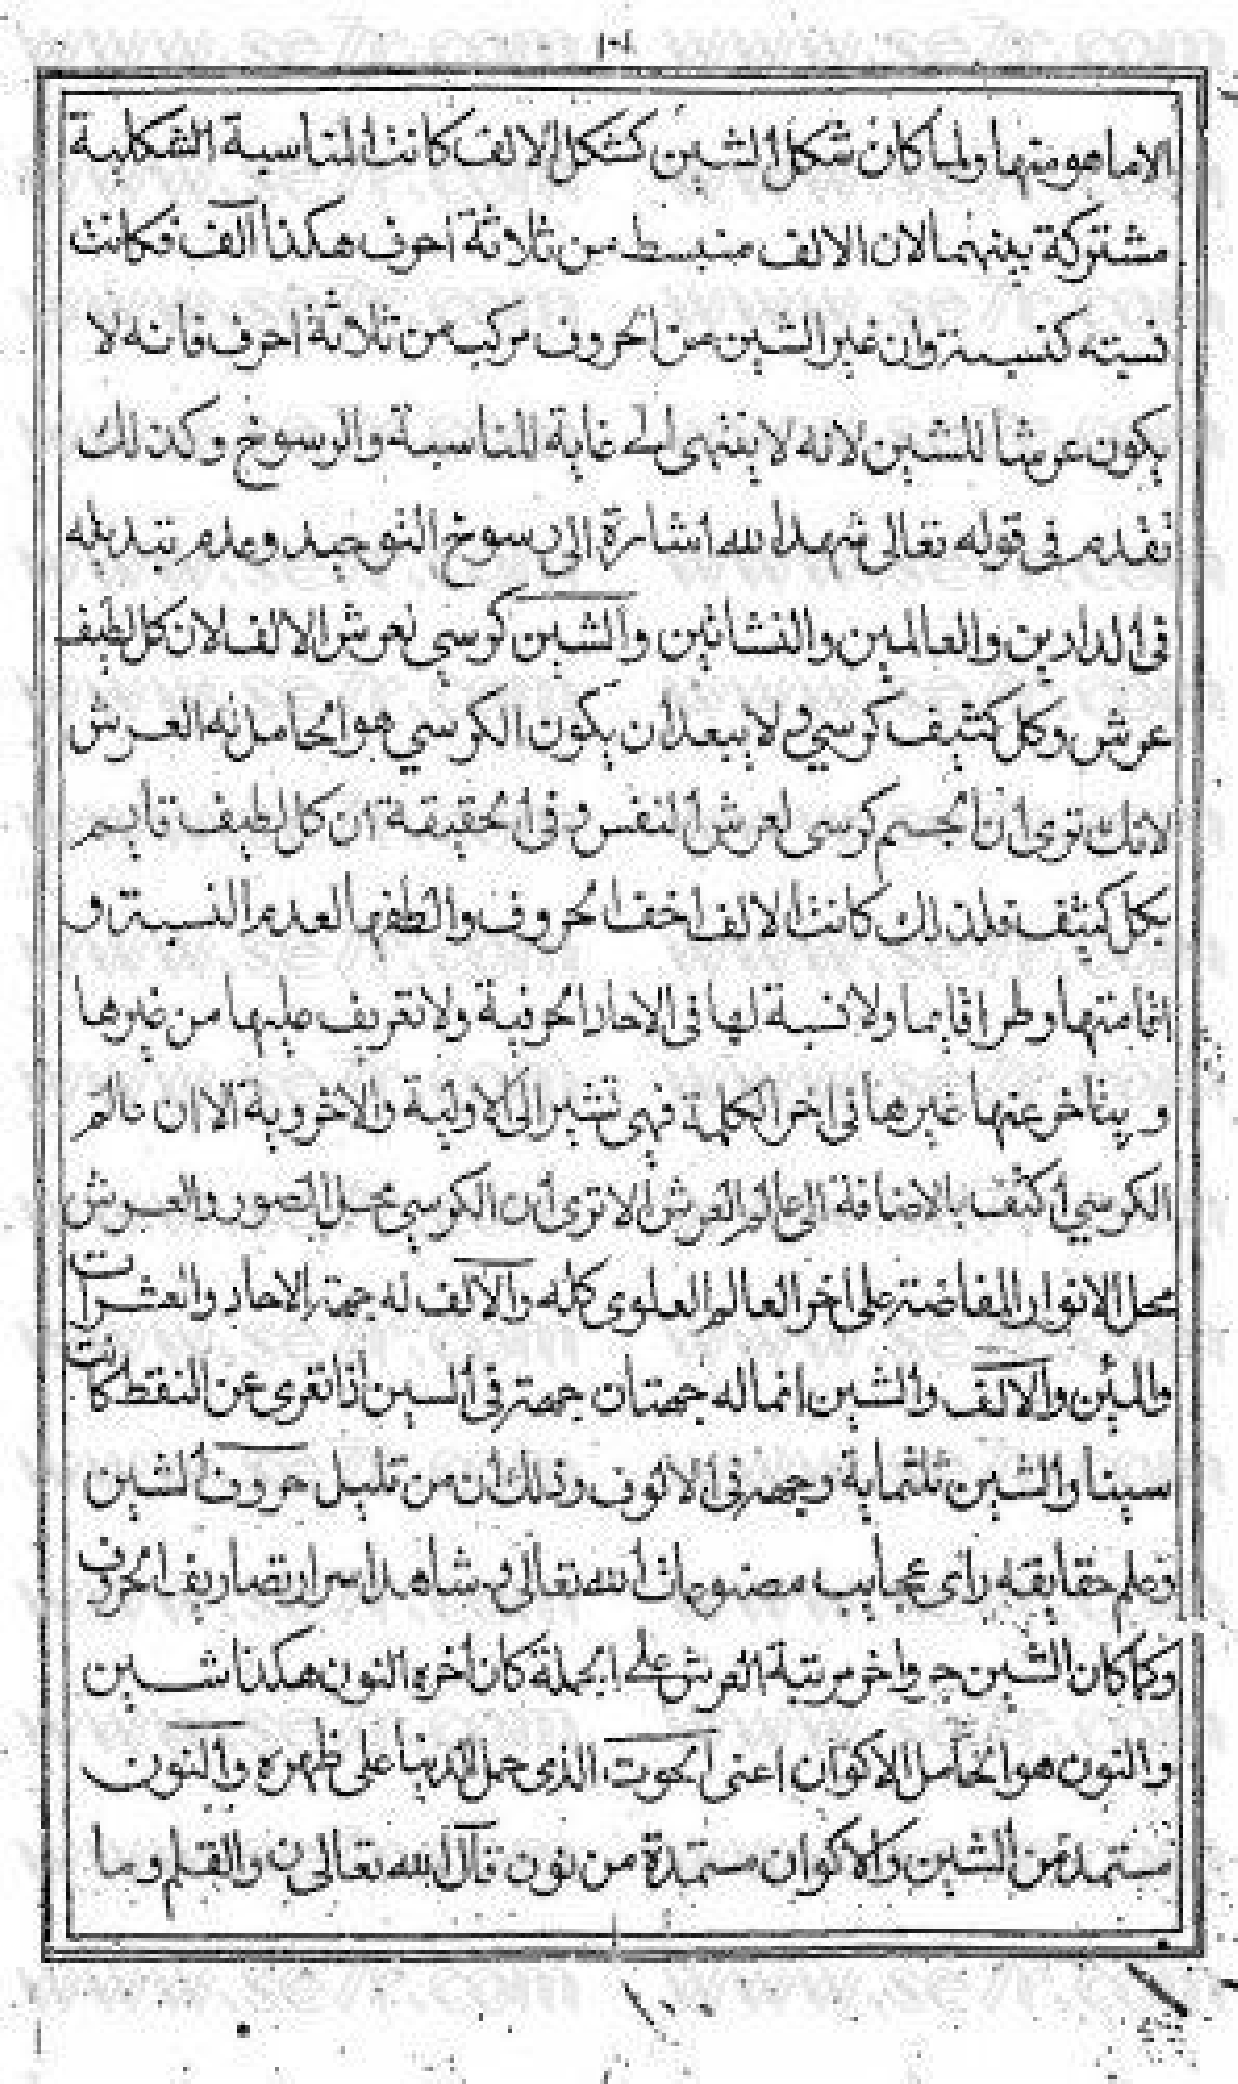 الاما هو منها ولما كان شكل الشين كشكل الالف كانت المناسبة الشكلية
مشتركة بينهما لان الالف منبسط من ثلاثة احرف هكذا الف فكانت
نسبته كنسبته وان غير الشين من الحروف مركب من ثلاثة احرف فانه لا
يكون عرشا للشين لانه لا ينتهى الى غاية المناسبة والرسوخ وكذلك
تقدم فى قوله تعالى شهد الله اشارة الى رسوخ التوحيد وعدم تبديله
فى الدارين والعالمين والنشاتين والشين كرسي لعرش الالف لان كل لطيف
عرش وكل كثيف كرسي ولا يبعد ان يكون الكرسي هو الحامل له العرش
لانك ترى ان الجسم كرسى لعرش النفس وفى الحقيقة ان كل لطيف قايم
بكل كثيف فلذلك كانت الالف اخف الحروف والطفها لعدم النسبة و
منها وطرا فايما ولا نسبة لها فى الاحاد الحرفية ولا تعريف عليها من غيرها
ويتاخر عنها غيرها فى اخر الكلمة فهى تشير الى الاولية والاخروية الا ان عالم
الكرسي اكثف بالاضافة الى عالم العرش الا ترى ان الكرسي محل الصور والعرش
محل الانوار المفاضة على اخر العالم العلوى كله والالف له جهة الاحاد والعشرات
والمئين والالف والشين انما له جهتان جهة فى السين اذا تعرى عن النقط كانت
سينا والشين ثلثماية وجهة فى الالوف وذلك ان من تامل حروف الشين
وعلم حقايقه راى عجايب مصنوعات الله تعالى وشاهد اسرار تصاريف الحروف
وكما كان الشين حرف اخر مرتبة العرش على الجملة كان اخره النون هكذا شين
والنون هو الحامل الاكوان اعنى الحوت الذى حمل الدنيا على ظهره والنون
تستمد من الشين والاكوان مستمدة من نون قال الله تعالى ن والقلم وما
١٠٠